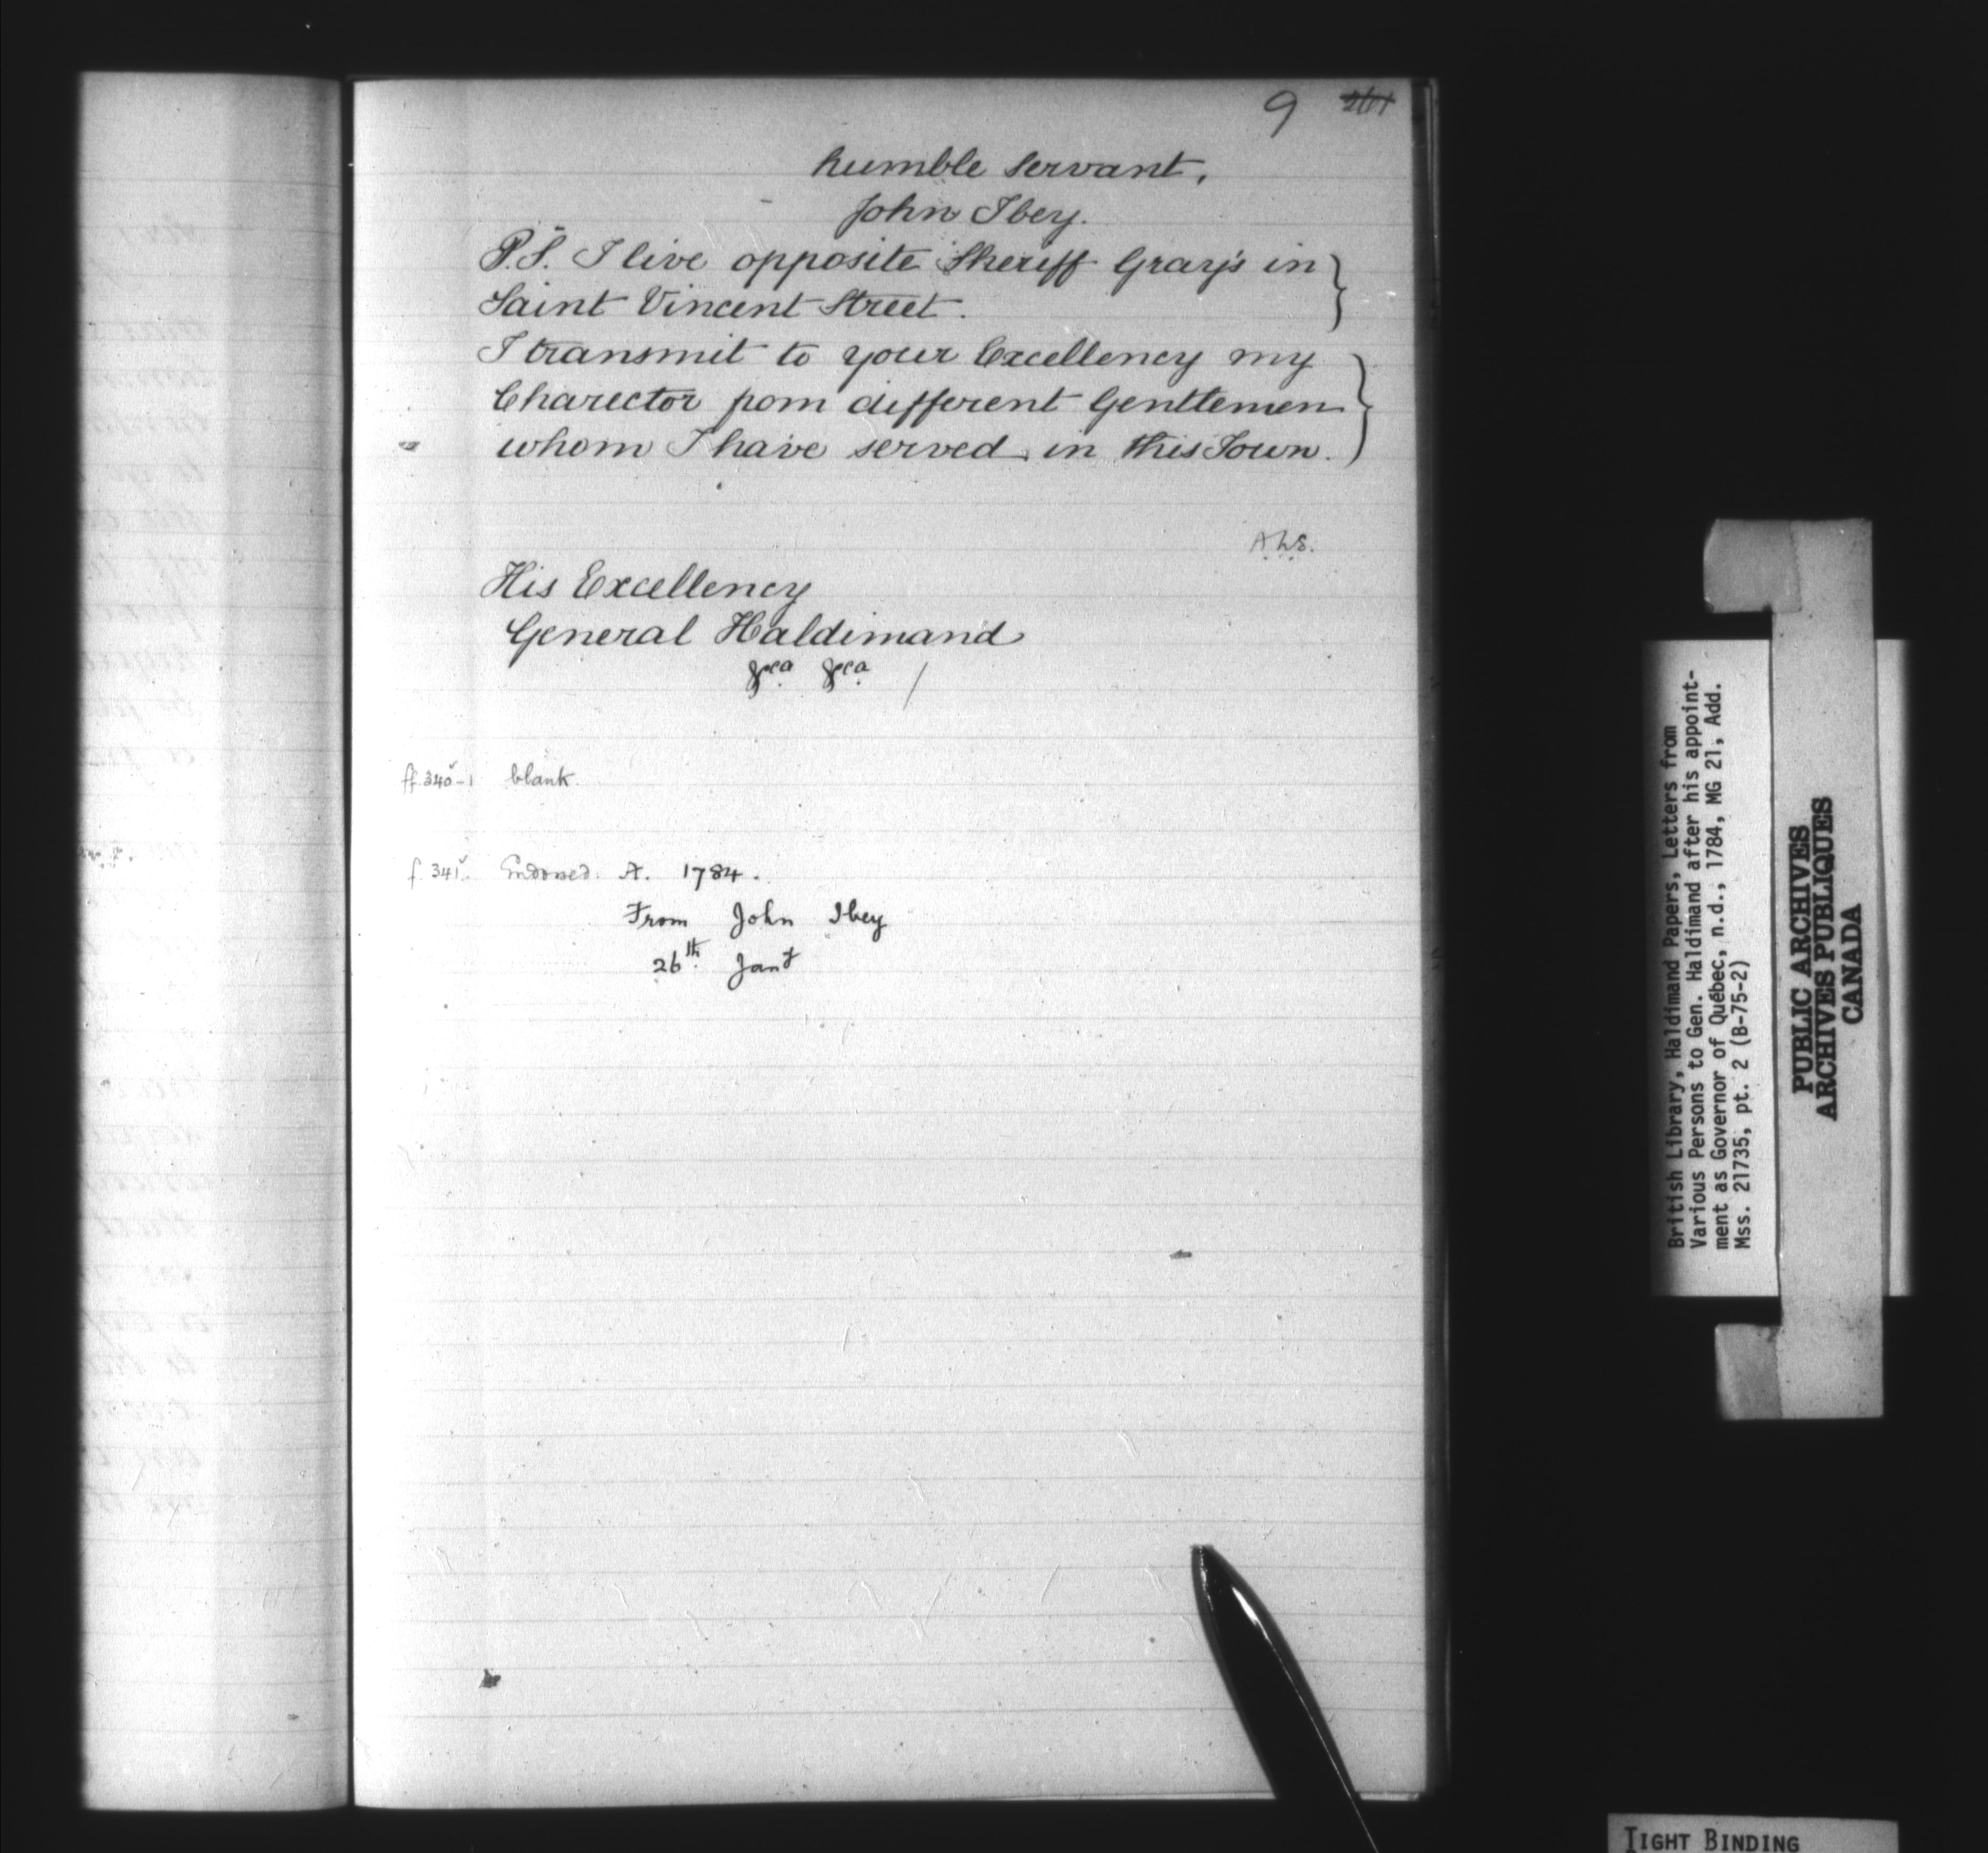 9 261
humble servant,
John Ibey.
P.S. I live opposite Sheriff Gray's in
Saint Vincent Street.
I transmit to your Excellency my
Charector from different Gentlemen
whom I have served in this Town.
A.L.S.
His Excellency
General Haldimand
&ca &ca /
ff. 340v-1 blank.
f. 341v. Endorsed. A. 1784.
From John Ibey
26th Jany
British Library, Haldimand Papers, Letters from
Various Persons to Gen. Haldimand after his appoint-
ment as Governor of Québec, n.d., 1784, MG 21, Add.
Mss. 21735, pt. 2 (B-75-2)
PUBLIC ARCHIVES
ARCHIVES PUBLIQUES
CANADA
TIGHT BINDING